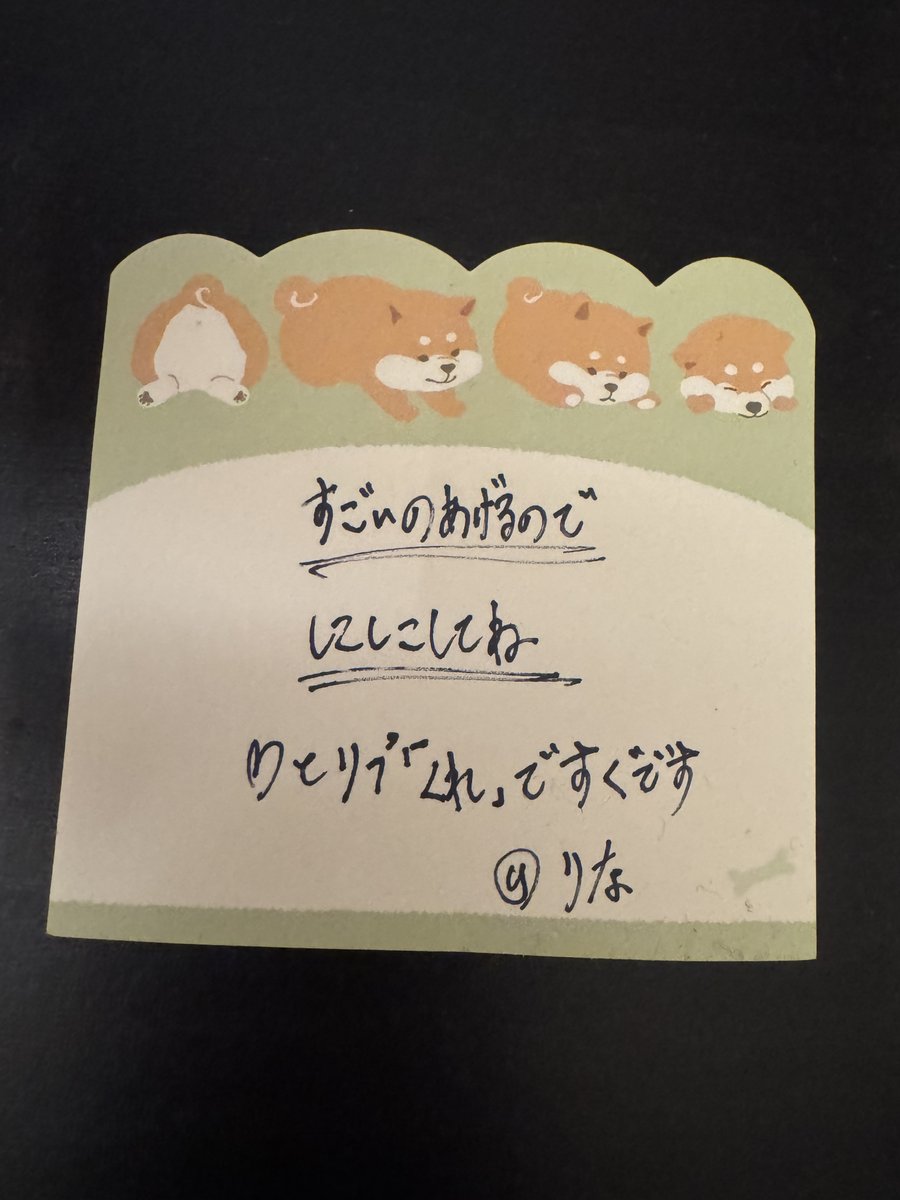 すごいのあげるので
しこしこしてね
ワとリプ「くれ」ですぐです
㋷りな